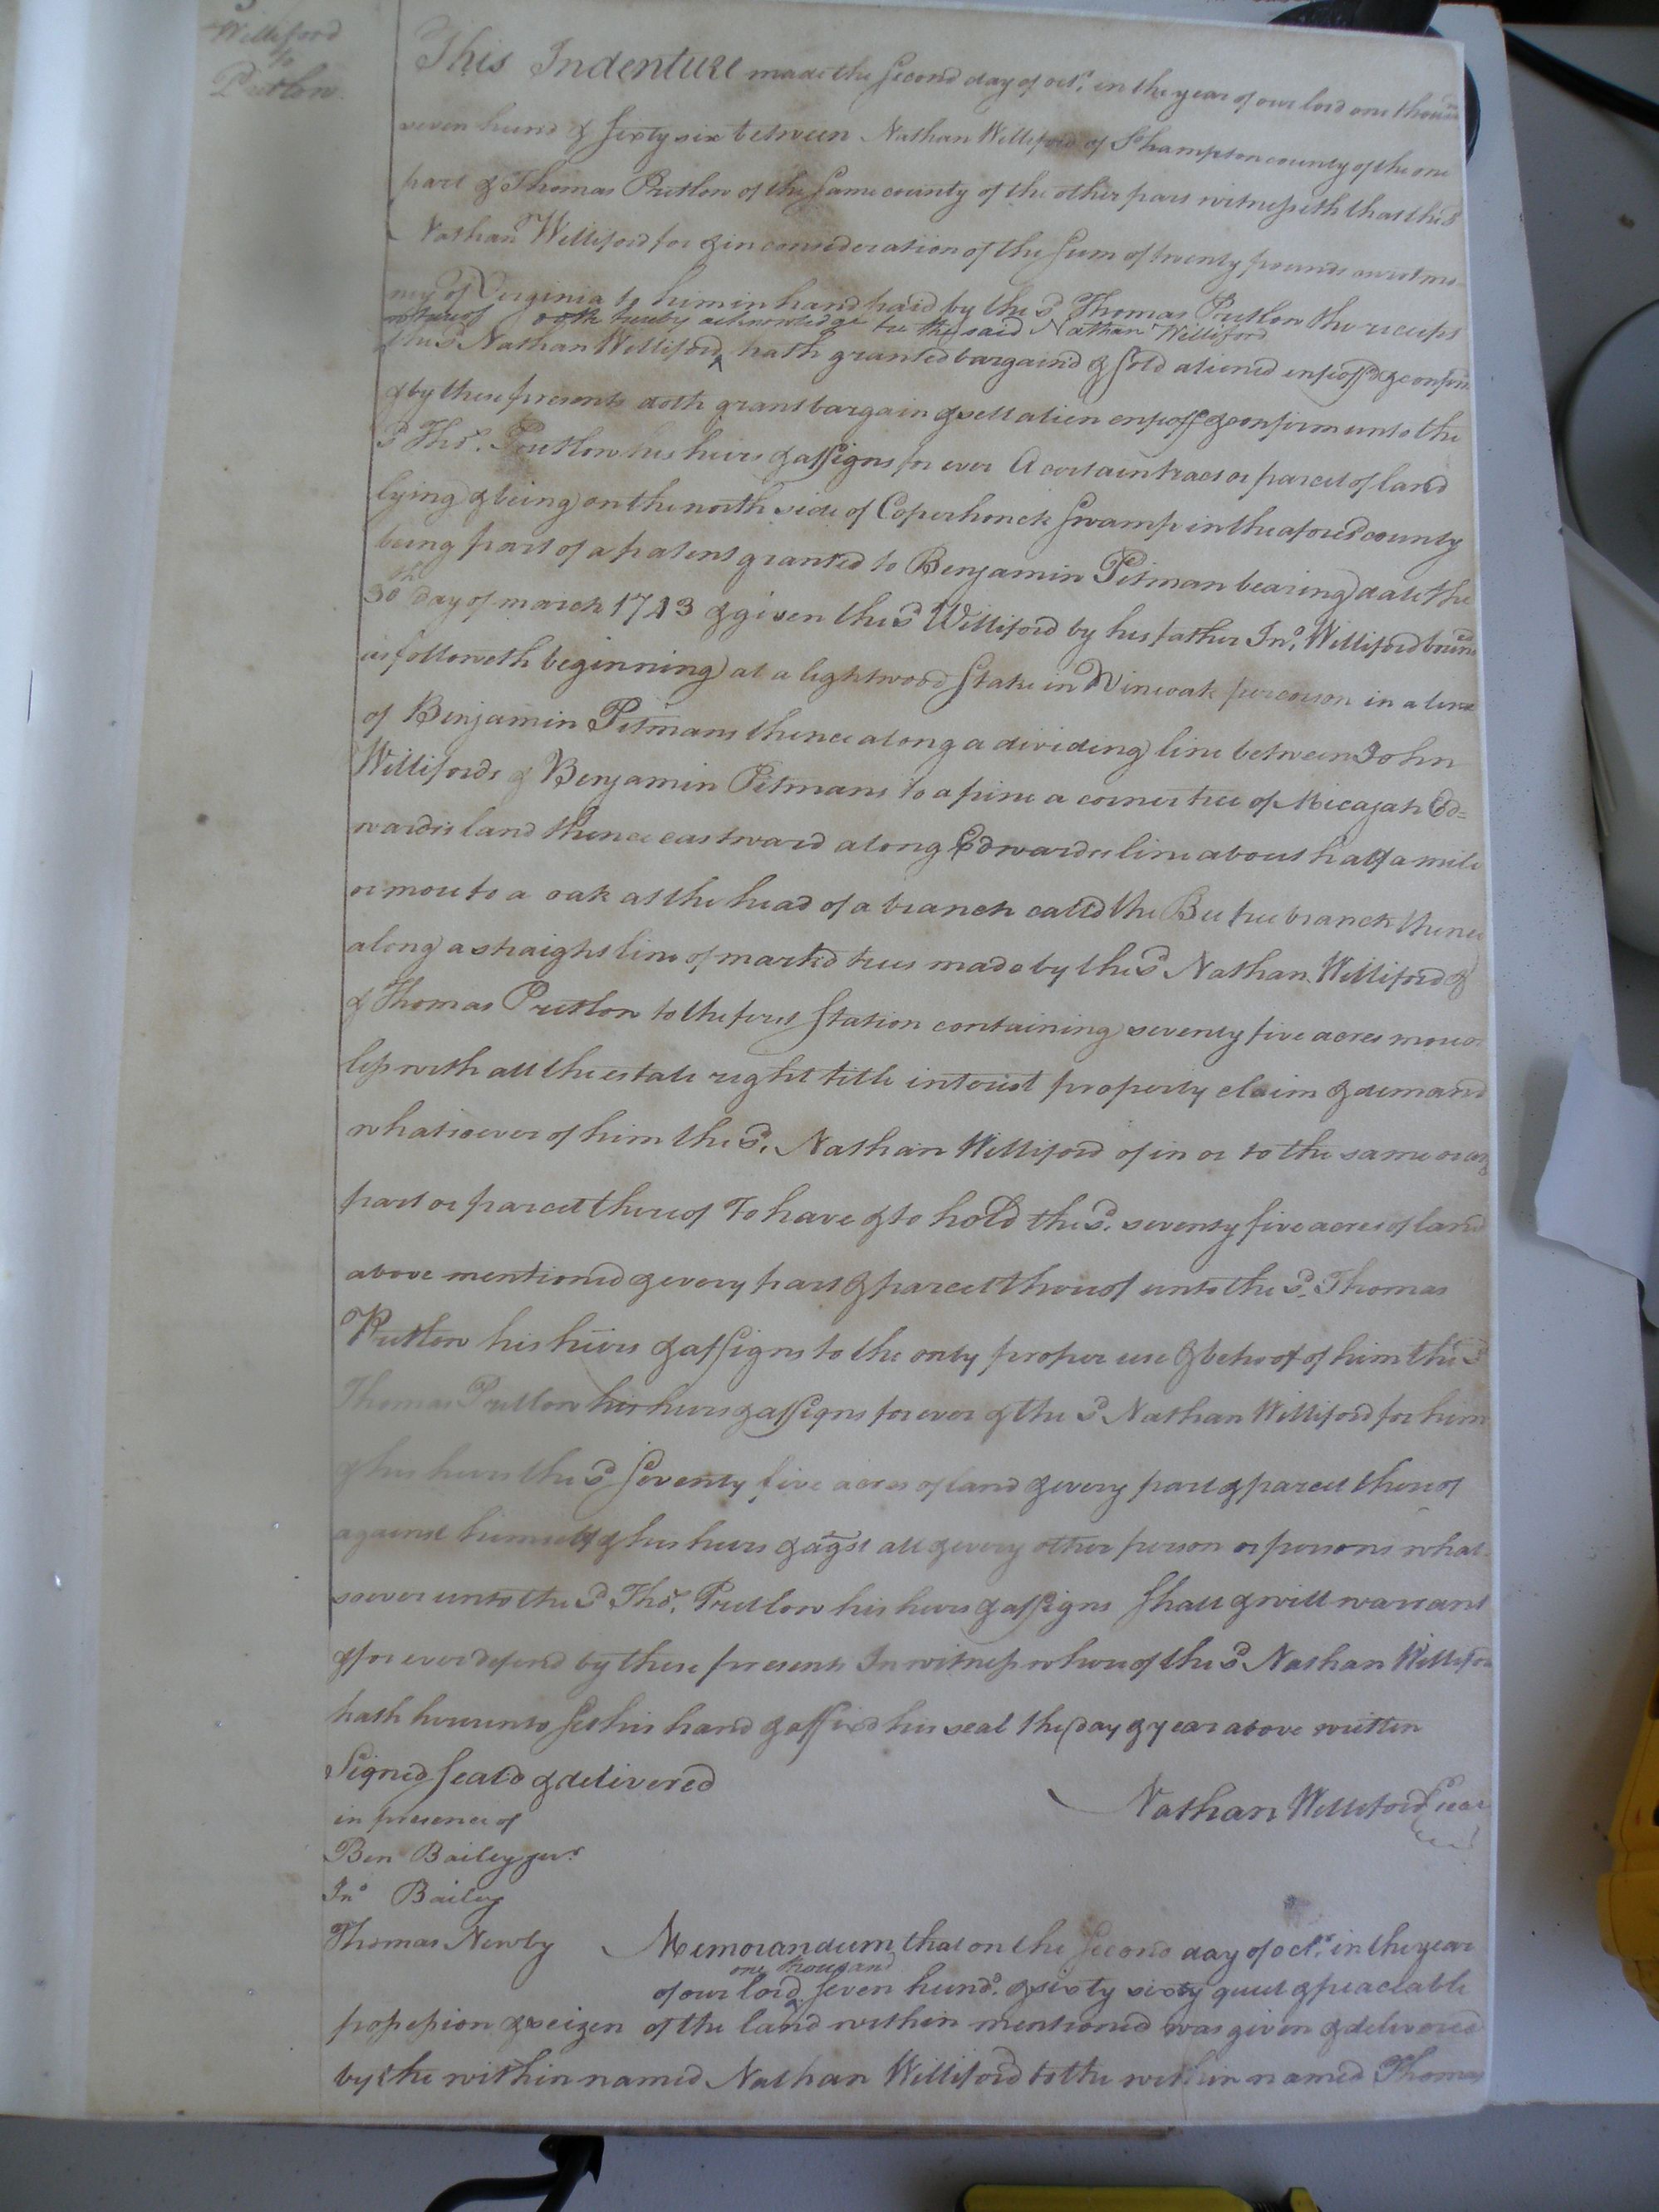 Williford
to
Pretlow
This Indenture made the Second day of octr. in the year of our lord one thousd
seven hund & Sixty six between Nathan Williford of Shampton county of the one
part & Thomas Pretlow of the Same county of the other part witnesseth that the sd
Nathan Williford for & in consideration of the Sum of twenty pounds curst mo-
ney of Virginia to him in hand paid by the sd Thomas Pretlow the receipt
whereof doth hereby acknowledge he the said Nathan Williford
the sd Nathan Williford ^ hath granted bargaind & Sold aliened enfeoffd & confirm
& by these presents doth grant bargain & sell alien enfeoff & confirm unto the
sd Thos. Pretlow his heirs & assigns for ever A certain tract or parcel of land
lying & being on the north side of Coperhonck Swamp in the aforesd county
being part of a patent granted to Benjamin Pitman bearing date the
30th day of march 1743 & given the sd Williford by his father Jno. Williford bound
as followeth beginning at a lightwood Stake in percoson in a line
of Benjamin Pitmans thence along a dividing line between John
Willifords & Benjamin Pitmans to a pine a corner tree of Micajah Ed=
wards land thence eastward along Edwards line about half a mile
or more to a oak at the head of a branch calld the Bee tree branch thence
along a straight line of markd trees made by the sd Nathan Williford &
& Thomas Pretlow to the first Station containing seventy five acres more or
less with all the estate right title interest property claim & demand
whatsoever of him the sd. Nathan Williford of in or to the same or any
part or parcel thereof To have & to hold the sd. seventy five acres of land
above mentioned & every part & parcel thereof unto the sd. Thomas
Pretlow his heirs & assigns to the only proper use & behoof of him the sd
Thomas Pretlow his heirs & assigns forever & the sd Nathan Williford for him
& his heirs the sd Seventy five acres of land & every part & parcel thereof
against himself & his heirs & agst all & every other person or persons what-
soever unto the sd Thos. Pretlow his heirs & assigns Shall & will warrant
& for ever defend by these presents In witness whereof the sd Nathan Williford
hath hereunto Set his hand & affixd his seal the day & year above written
Signed Seald & delivered
Nathan Williford Seal
in presence of
Ben Bailey junr
Jno Bailey
Thomas Newby
Memorandum that on the Second day of octr. in the year
one thousand
of our lord ^ Seven hund. & sixty sixty quiet & peaceable
possession & seizen of the land within mentioned was given & delivered
by the within named Nathan Williford to the within named Thomas